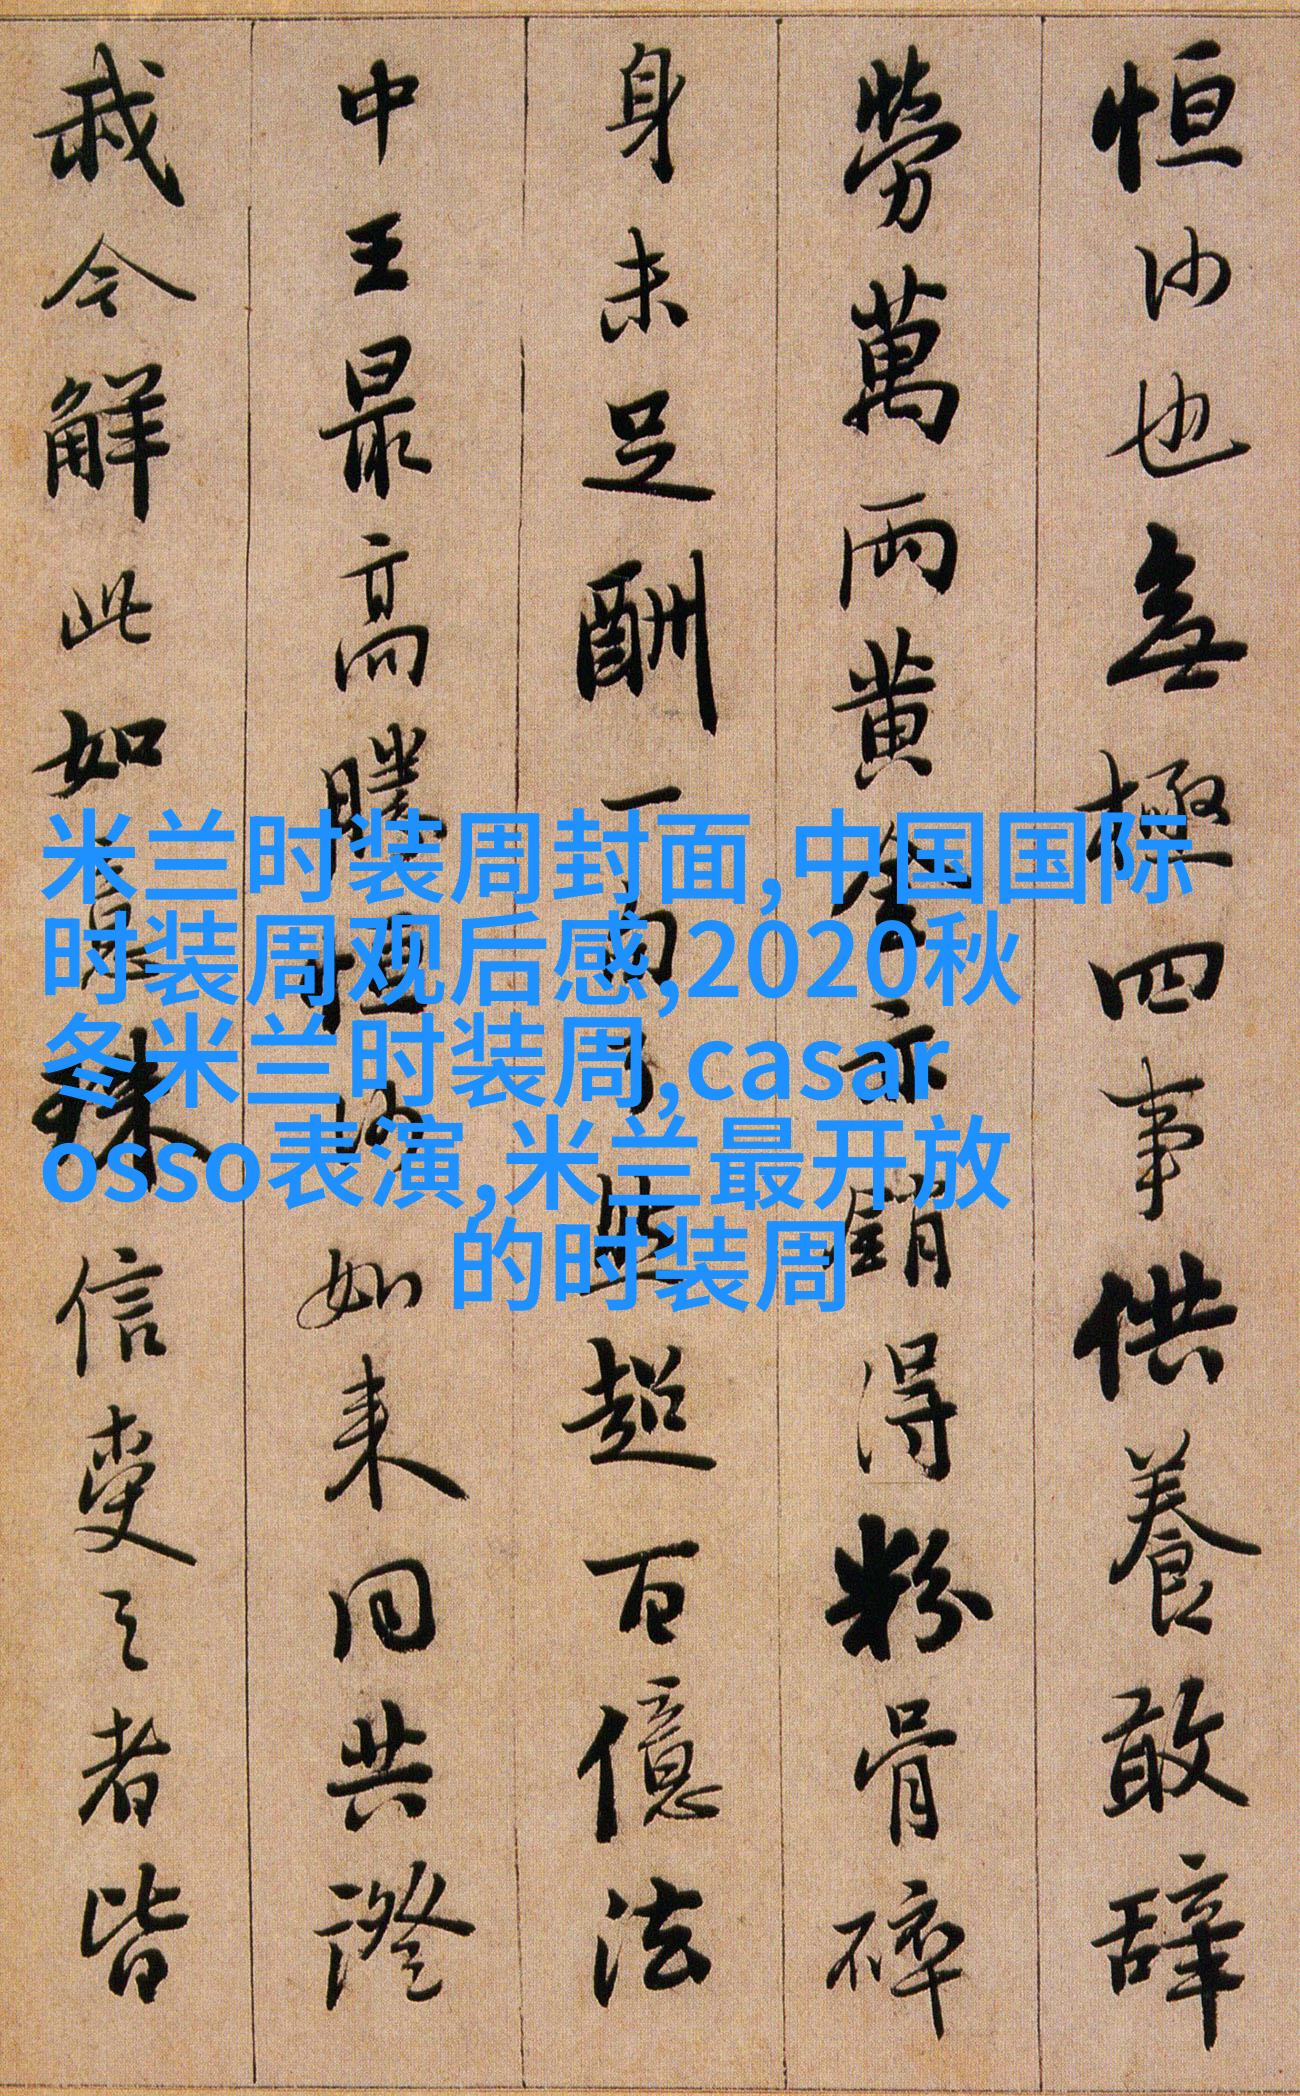 恒沙也無極四事供養敢辭
勞萬兩黄金亦銷得粉骨碎
身未足酬一句了然超百億法
中王最高勝恒沙如来同共證
我今解此如意珠信受之者皆
米兰时装周封面,中国国际
时装周观后感,2020秋
冬米兰时装周,casar
osso表演,米兰最开放
的时装周